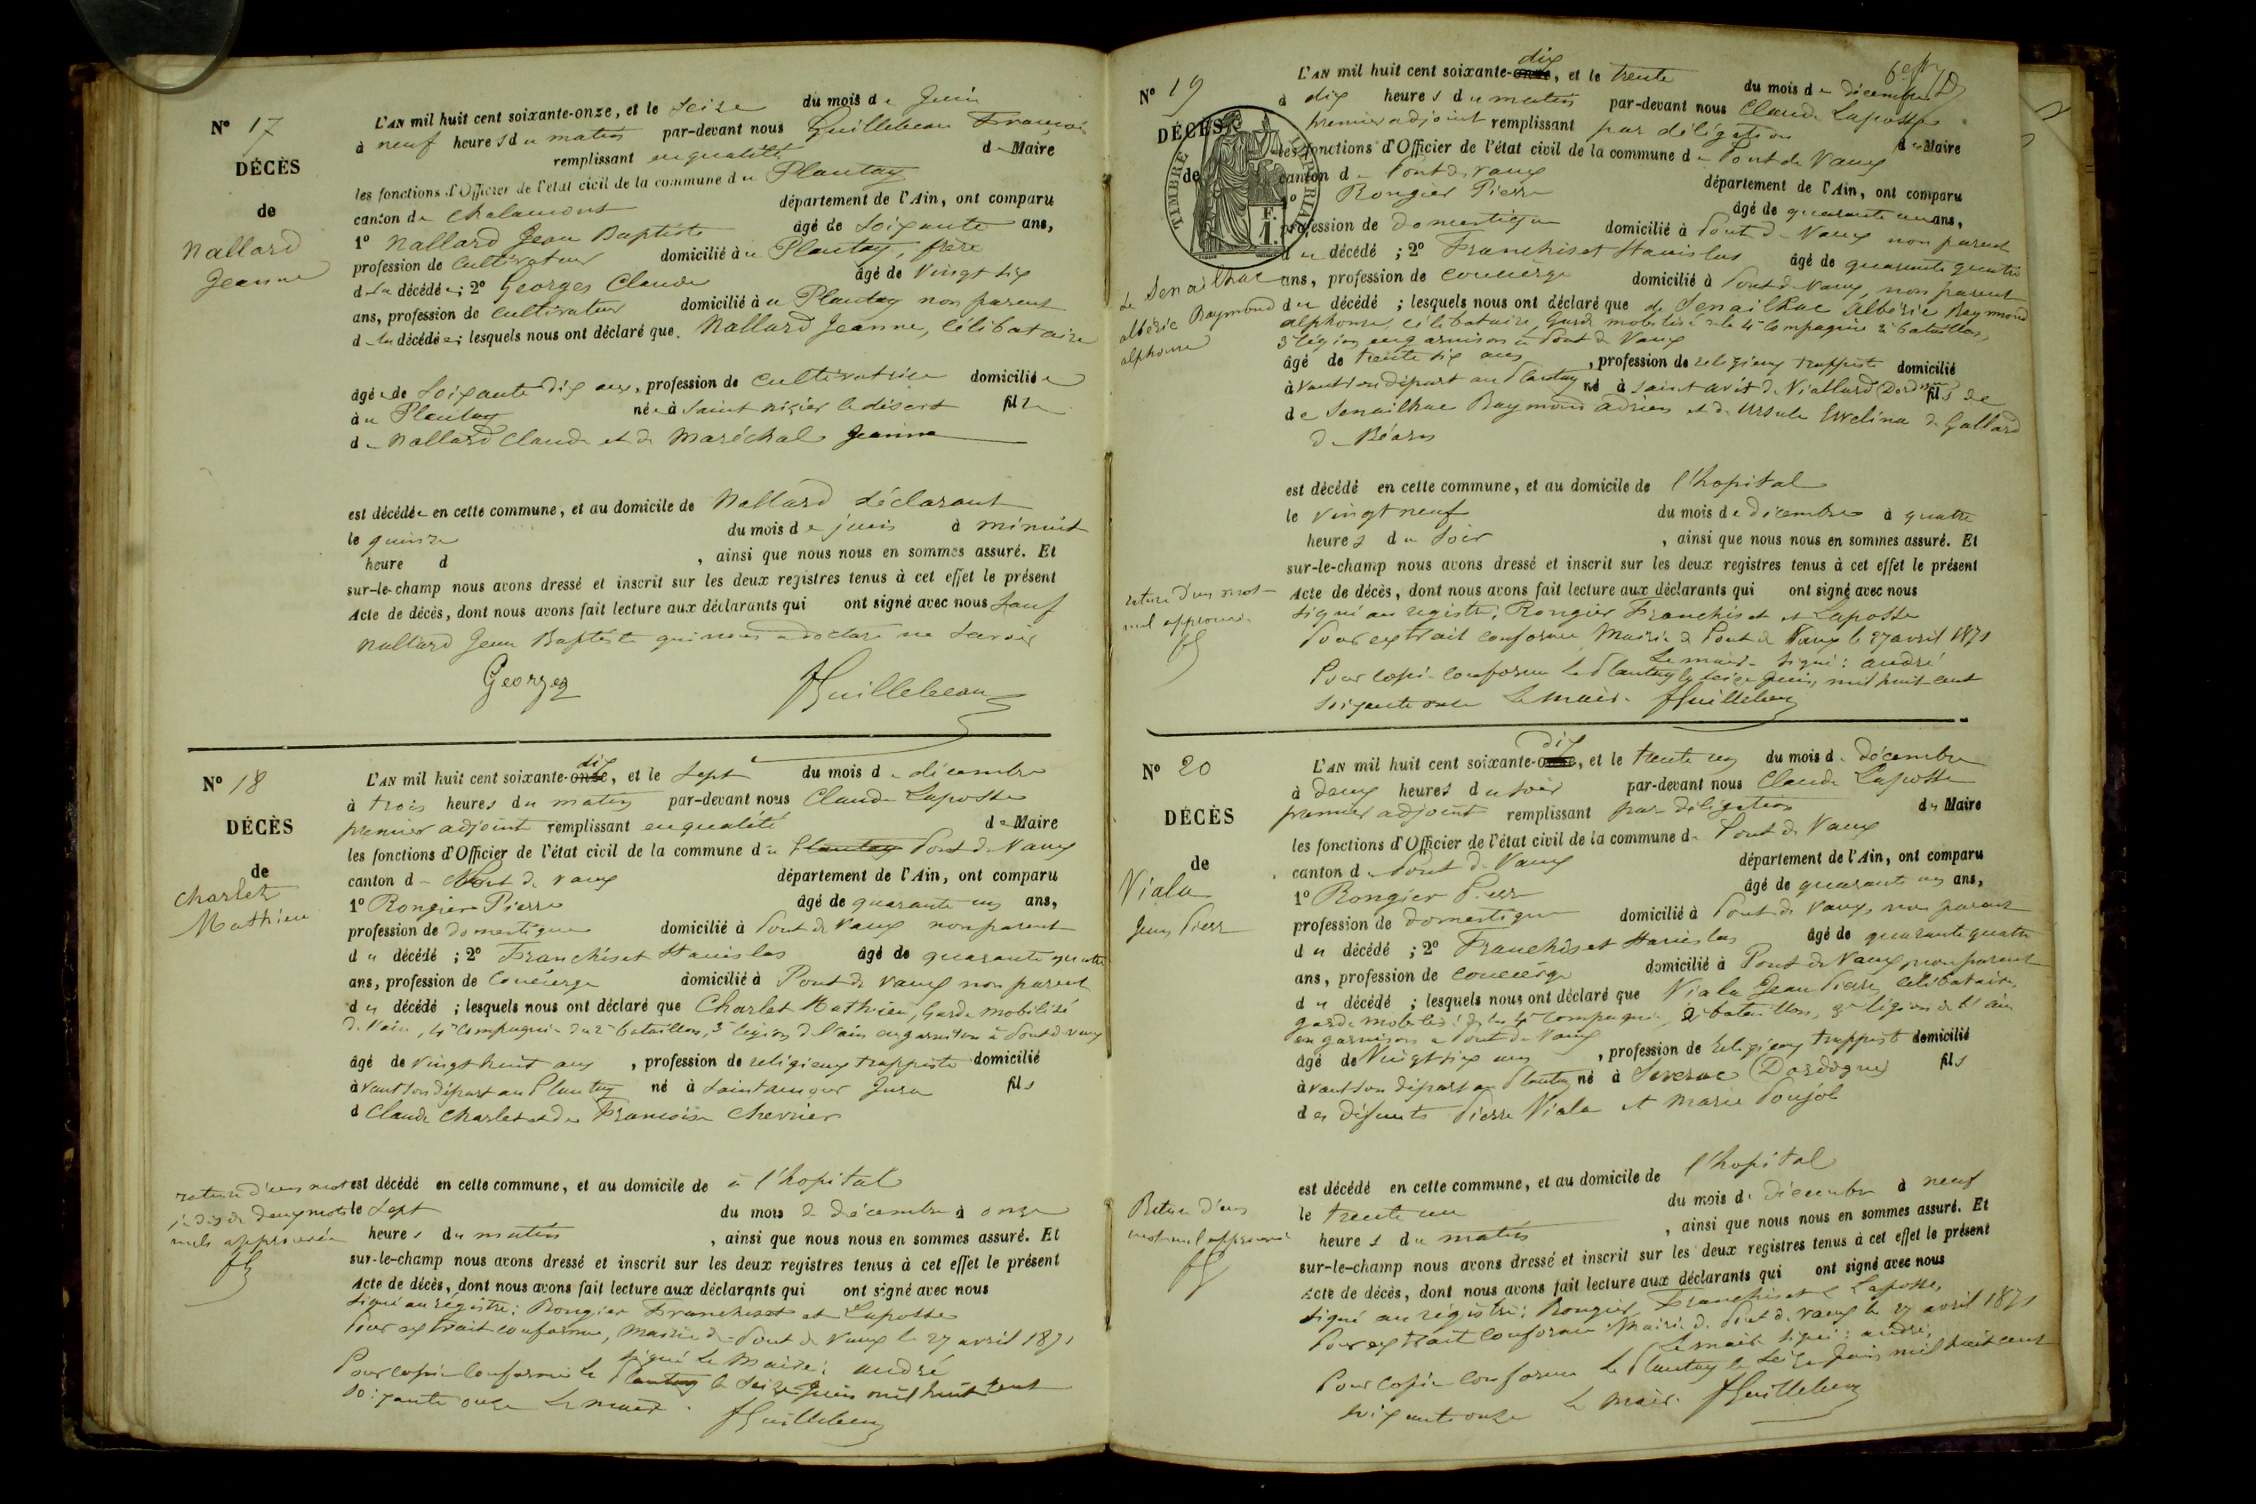 N° 17
DÉCÈS
de
Nallard
Jeanne
L'AN mil huit cent soixante-onze, et le seize du mois de Juin
à neuf heures du matin par-devant nous Guillebeau François
remplissant en qualité de Maire
les fonctions d'Officier de l'état civil de la commune du Plantay
canton de Chalamont département de l'Ain, ont comparu
1° Nallard Jean Baptiste âgé de soixante ans,
profession de cultivateur domicilié au Plantay, frère
de la décédée ; 2° Georges Claude âgé de vingt six
ans, profession de cultivateur domicilié au Plantay non parent
de la décédée ; lesquels nous ont déclaré que Nallard Jeanne, célibataire
âgée de soixante dix ans, profession de cultivatrice domiciliée
au Plantay née à Saint nizier le désert fille
de Nallard Claude et de Maréchal Jeanne
est décédée en cette commune, et au domicile de Nallard déclarant
le quinze du mois de juin à minuit
heure d , ainsi que nous nous en sommes assuré. Et
sur-le-champ nous avons dressé et inscrit sur les deux registres tenus à cet effet le présent
Acte de décès, dont nous avons fait lecture aux déclarants qui ont signé avec nous sauf
Nallard Jean Baptiste qui nous a déclaré ne savoir
Georges FGuillebeau
N° 18
DÉCÈS
de
Charlet
Mathieu
L'AN mil huit cent soixante-onze dix, et le sept du mois de décembre
à trois heures du matin par-devant nous Claude Laposse
premier adjoint remplissant en qualité de Maire
les fonctions d'Officier de l'état civil de la commune du Plantay Pont de Vaux
canton de Pont de vaux département de l'Ain, ont comparu
1° Rongier Pierre âgé de quarante un ans,
profession de domestique domicilié à Pont de Vaux non parent
du décédé ; 2° Franchiset Stanislas âgé de quarante quatre
ans, profession de concierge domicilié à Pont de vaux non parent
du décédé ; lesquels nous ont déclaré que Charlet Mathieu, Garde mobilisé
de l'ain, 4e compagnie du 2e bataillon, 3e légion de l'ain en garnison à Pont de vaux
âgé de vingt huit ans , profession de religieux trappiste domicilié
avant son départ au Plantay né à Saint amour Jura fils
d Claude Charlet et de Françoise Chevrier
rature d'un mot
mots
nuls approuvée
FG
est décédé en cette commune, et au domicile de à l'hopital
le sept du mois de décembre à onze
heures du matin , ainsi que nous nous en sommes assuré. Et
sur-le-champ nous avons dressé et inscrit sur les deux registres tenus à cet effet le présent
Acte de décès, dont nous avons fait lecture aux déclarants qui ont signé avec nous
signé au régistre: Rongier Franchiset et Laposse
Pour extrait conforme, Mairie de Pont de Vaux le 27 avril 1871
signé Le Maire: andré
Pour copie conforme Le Plantay le seize Juin mil huit cent
soixante onze Le maire. FGuillebeau
N° 19
DÉCÈS
de
TIMBRE IMPÉRIAL
1 F.
de Senailhac
albéric Raymond
alphonse
L'AN mil huit cent soixante-onze dix, et le trente du mois de décembre
à dix heures du matin par-devant nous Claude Laposse
premier adjoint remplissant par délégation de Maire
les fonctions d'Officier de l'état civil de la commune de Pont de Vaux
canton de Pont de vaux département de l'Ain, ont comparu
1° Rongier Pierre âgé de quarante un ans,
profession de domestique domicilié à Pont de Vaux non parent
du décédé ; 2° Franchiset Stanislas âgé de quarante quatre
ans, profession de concierge domicilié à Pont de Vaux, non parent
du décédé ; lesquels nous ont déclaré que de Senailhac Albéric Raymond
alphonse, célibataire, Garde mobilisé de la 4e Compagnie 2e bataillon,
3e légion en garnison à Pont de Vaux
âgé de trente six ans , profession de religieux trappiste domicilié
avant son départ au Plantay né à saint avit de Viallard (Dordogne) fils de
de Senailhac Raymond adrien et de Ursule Ewelina de Gallard
de Béarn
est décédé en cette commune, et au domicile de l'hopital
le vingt neuf du mois de décembre à quatre
heures du soir , ainsi que nous nous en sommes assuré. Et
sur-le-champ nous avons dressé et inscrit sur les deux registres tenus à cet effet le présent
rature d'un mot
nul approuvée
FG
Acte de décès, dont nous avons fait lecture aux déclarants qui ont signé avec nous
signé au registre: Rongier Franchiset et Laposse
Pour extrait conforme, Mairie de Pont de Vaux le 27 avril 1871
Le maire signé: andré
Pour copie conforme Le Plantay le seize Juin, mil huit cent
soixante onze Le maire. FGuillebeau
N° 20
DÉCÈS
de
Viala
Jean Pierre
L'AN mil huit cent soixante-onze dix, et le trente un du mois de décembre
à deux heures du soir par-devant nous Claude Laposse
premier adjoint remplissant par délégation de Maire
les fonctions d'Officier de l'état civil de la commune de Pont de Vaux
canton d Pont de Vaux département de l'Ain, ont comparu
1° Rongier Pierre âgé de quarante un ans,
profession de domestique domicilié à Pont de Vaux, non parent
du décédé ; 2° Franchiset Stanislas âgé de quarante quatre
ans, profession de concierge domicilié à Pont de Vaux, non parent
du décédé ; lesquels nous ont déclaré que Viala Jean Pierre, célibataire,
garde mobilisé de la 4e compagnie, 2e bataillon, 3e légion de l'ain
en garnison à Pont de Vaux
âgé de Vingt six ans , profession de religieux trappiste domicilié
avant son départ au Plantay né à Siverac (Dordogne) fils
des défunts Pierre Viala et Marie Poujol
est décédé en cette commune, et au domicile de l'hopital
le trente un du mois de décembre à neuf
heures du matin , ainsi que nous nous en sommes assuré. Et
Rature d'un
mot nul approuvée
FG
sur-le-champ nous avons dressé et inscrit sur les deux registres tenus à cet effet le présent
Acte de décès, dont nous avons fait lecture aux déclarants qui ont signé avec nous
signé au régistre: Rongier, Franchiset Laposse,
Pour extrait conforme Mairie de Pont de vaux le 27 avril 1871
Le maire signé: andré,
Pour copie conforme Le Plantay le seize Juin mil huit cent
soixante onze Le Maire. FGuillebeau